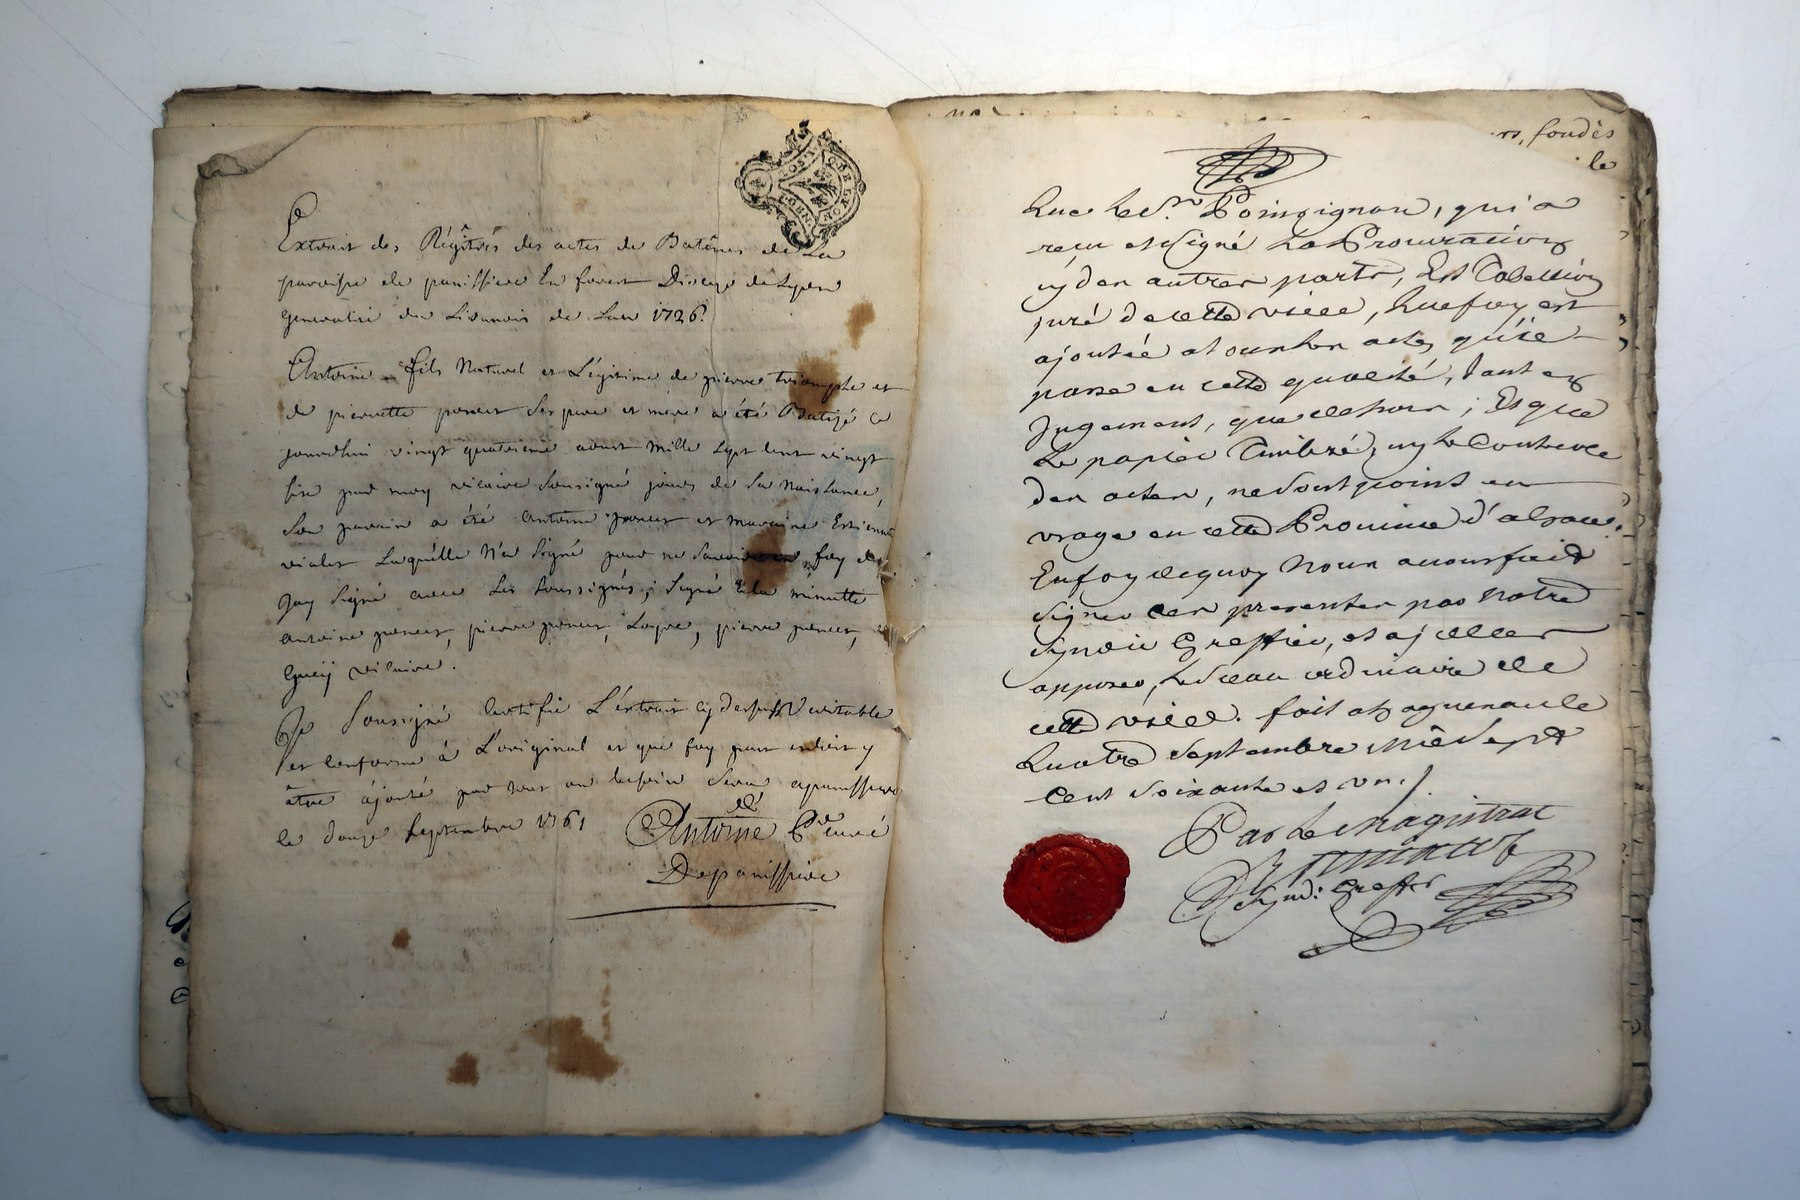 Extrait des Régitres des actes de Batêmes de La
paroisse de panissiere En forest Dioceze de Lyon
generalité du Lionnois de Lan 1726.
Antoine fils Naturel et Légitime de pierre triomphe et
de pierrette poncet Ses pere et mere a été Batizé ce
jourdhui vingt quatrieme aoust mille Sept Cent vingt
Six par moy vicaire Soussigné jour de Sa Naissance,
Son parain a été antoine poncet et maraine Estiennette
vialet Laquélle N'a Signé pour ne Savoir foy de
quoy Signé avec Les Soussignés; Signé à la minutte
antoine poncet, pierre poncet, pierre poncet,
vicaire.
Je Soussigné Certifie L'éxtrait cy dessus Veritable
et Conforme à L'original et que foy peut et doit y
être ajouté par tout ou besoin Sera a panissiere
le douze Septembre 1761 Antoine Curé
De panissiere
rs, fondès
le
Que Le Sr. Poinsignon, qui a
reçu et Signé La Procuration
cy des autres parts, Est Tabellion
juré de cette ville, Que foy est
ajoutée a tous les actes qu'il
passe en cette qualité, tant en
Jugement, que dehors; Et que
Le papier Timbré, ny le Controlle
des actes, ne Sont point en
usage en cette Province d'alsace.
En foy de quoy Nous avons fait
Signer ces presentes par Notre
Syndic Greffier, et a jcelles
apposer, Le Sceau ordinaire de
cette ville. fait a haguenau le
Quatre Septembre mil Sept
Cent Soixante et un./.
Par Le Magistrat
Synd: Greffer